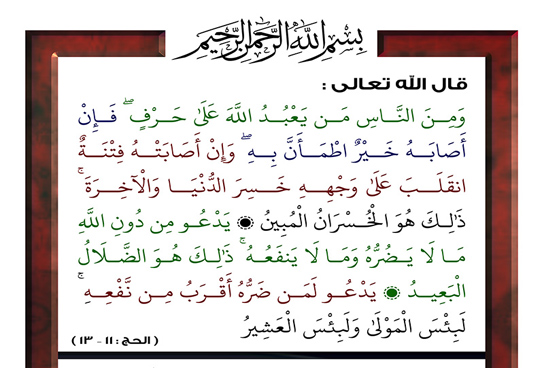 بِسْمِ اللَّهِ الرَّحْمَنِ الرَّحِيمِ
قال الله تعالى :
وَمِنَ النَّاسِ مَن يَعْبُدُ اللَّهَ عَلَىٰ حَرْفٍ ۖ فَإِنْ
أَصَابَهُ خَيْرٌ اطْمَأَنَّ بِهِ ۖ وَإِنْ أَصَابَتْهُ فِتْنَةٌ
انقَلَبَ عَلَىٰ وَجْهِهِ خَسِرَ الدُّنْيَا وَالْآخِرَةَ ۚ
ذَٰلِكَ هُوَ الْخُسْرَانُ الْمُبِينُ ۝ يَدْعُو مِن دُونِ اللَّهِ
مَا لَا يَضُرُّهُ وَمَا لَا يَنفَعُهُ ۚ ذَٰلِكَ هُوَ الضَّلَالُ
الْبَعِيدُ ۝ يَدْعُو لَمَن ضَرُّهُ أَقْرَبُ مِن نَّفْعِهِ ۚ
لَبِئْسَ الْمَوْلَىٰ وَلَبِئْسَ الْعَشِيرُ
( الحج : ١١ - ١٣ )